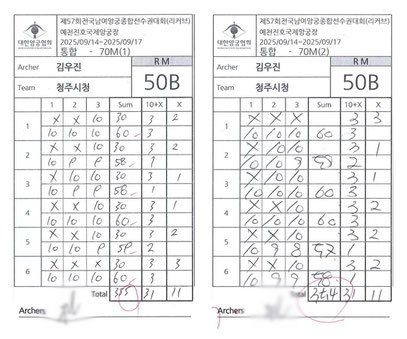 제57회전국남여양궁종합선수권대회(리커브)
예천진호국제양궁장
2025/09/14~2025/09/17
통합 - 70M(1)
대한양궁협회
Archer 김우진
RM
Team 청주시청
50B
1 2 3 Sum 10+X X
1 X X 10 30 3 2
10 10 10 60 3
2 X X 10 30 3 2
10 9 9 58 1
3 X 10 10 30 3 1
10 9 9 58 1
4 X 10 10 30 3 1
10 10 10 60 3
5 X X 10 30 3 2
10 10 9 59 2
6 X X X 30 3 3
10 10 10 60 3
Total 355 31 11
Archers
제57회전국남여양궁종합선수권대회(리커브)
예천진호국제양궁장
2025/09/14~2025/09/17
통합 - 70M(2)
대한양궁협회
Archer 김우진
RM
Team 청주시청
50B
1 2 3 Sum 10+X X
1 X X X 3 3
10 10 10 60 3
2 X 10 10 3 1
10 10 9 59 2
3 X 10 10 3 1
10 10 10 60 3
4 X X 10 3 2
10 10 10 60 3
5 X X 10 3 2
10 9 8 57 1
6 X X 10 3 2
10 9 9 58 1
Total 354 31 11
Archers